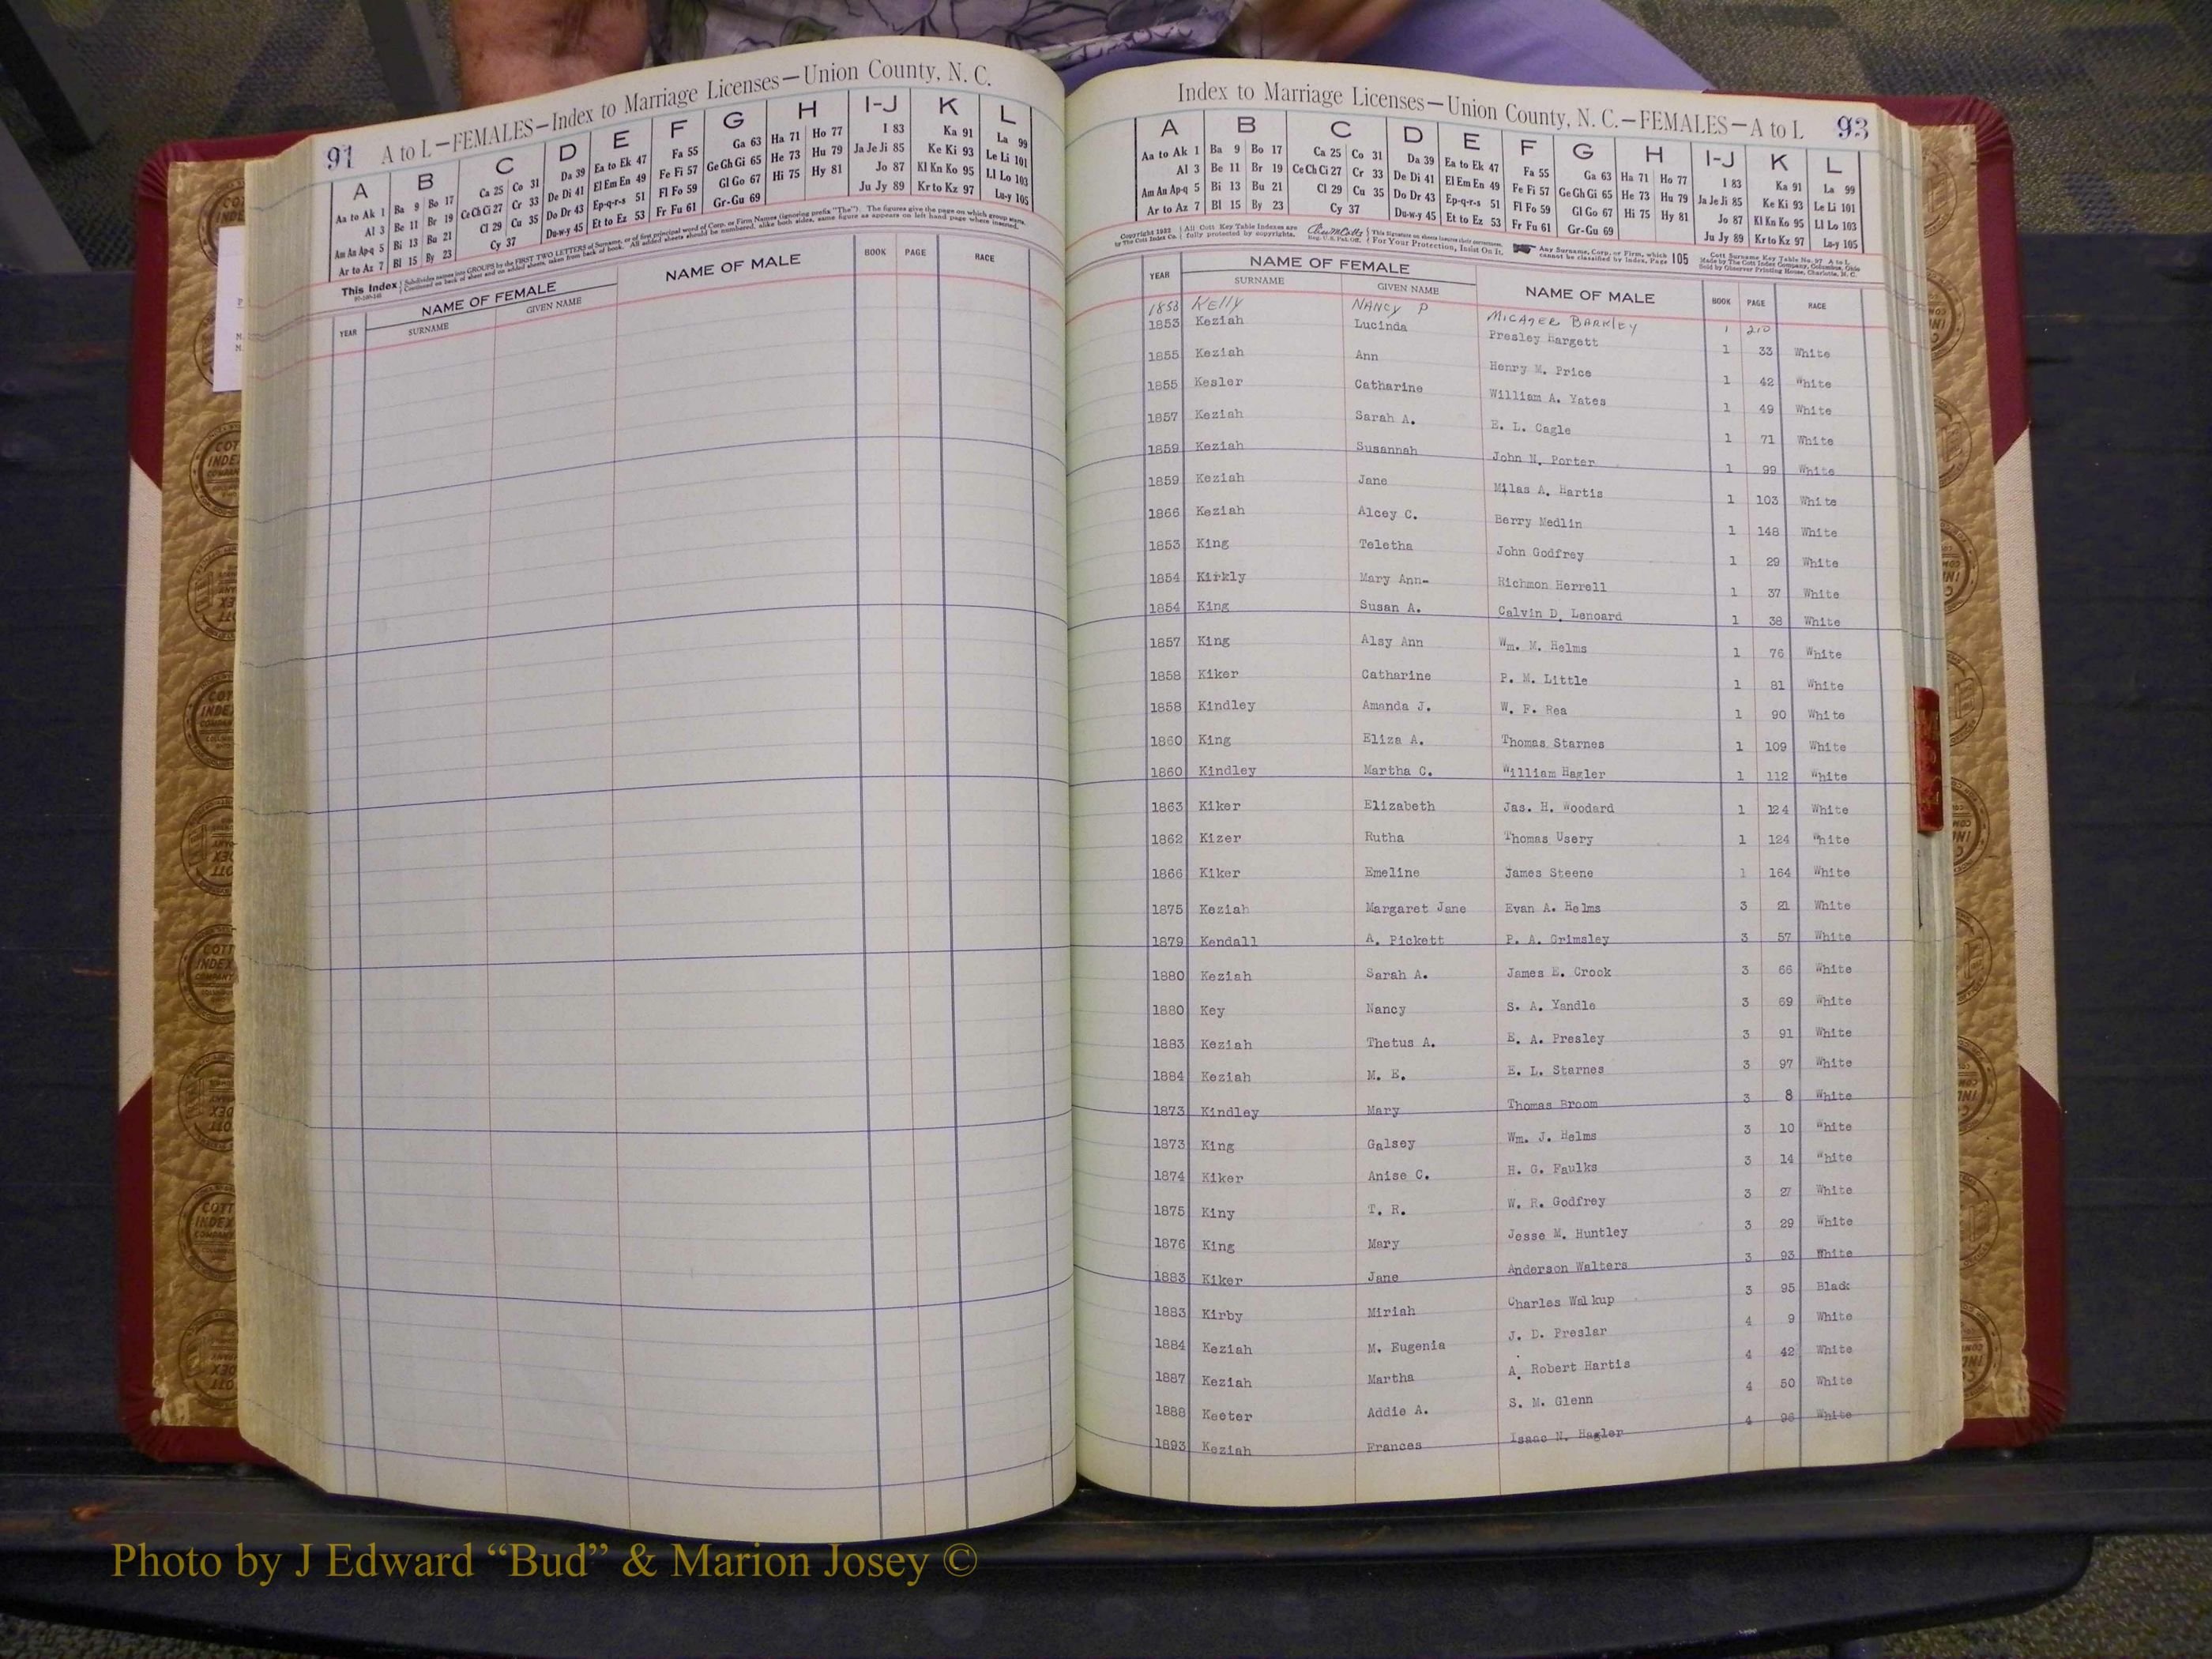 91 A to L—FEMALES—Index to Marriage Licenses—Union County, N. C.
A B C D E F G H I-J K L
Aa to Ak 1 Ba 9 Bo 17 Ca 25 Co 31 Da 39 Ea to Ek 47 Fa 55 Ga 63 Ha 71 Ho 77 I 83 Ka 91 La 99
Al 3 Be 11 Br 19 Ce Ch Ci 27 Cr 33 De Di 41 El Em En 49 Fe Fi 57 Ge Gh Gi 65 He 73 Hu 79 Ja Je Ji 85 Ke Ki 93 Le Li 101
Am An Ap-q 5 Bi 13 Bu 21 Cl 29 Cu 35 Do Dr 43 Ep-q-r-s 51 Fl Fo 59 Gl Go 67 Hi 75 Hy 81 Jo 87 Kl Kn Ko 95 Ll Lo 103
Ar to Az 7 Bl 15 By 23 Cy 37 Du-w-y 45 Et to Ez 53 Fr Fu 61 Gr-Gu 69 Ju Jy 89 Kr to Kz 97 Lu-y 105
This Index Subdivides names into GROUPS by the FIRST TWO LETTERS of Surname, or of first principal word of Corp. or Firm Names (ignoring prefix "The"). The figures give the page on which group starts.
Continued on back of sheet and on added sheets, taken from back of book. All added sheets should be numbered, alike both sides, same figure as appears on left hand page where inserted.
YEAR NAME OF FEMALE NAME OF MALE BOOK PAGE RACE
SURNAME GIVEN NAME
Index to Marriage Licenses—Union County, N. C.—FEMALES—A to L 93
A B C D E F G H I-J K L
Aa to Ak 1 Ba 9 Bo 17 Ca 25 Co 31 Da 39 Ea to Ek 47 Fa 55 Ga 63 Ha 71 Ho 77 I 83 Ka 91 La 99
Al 3 Be 11 Br 19 Ce Ch Ci 27 Cr 33 De Di 41 El Em En 49 Fe Fi 57 Ge Gh Gi 65 He 73 Hu 79 Ja Je Ji 85 Ke Ki 93 Le Li 101
Am An Ap-q 5 Bi 13 Bu 21 Cl 29 Cu 35 Do Dr 43 Ep-q-r-s 51 Fl Fo 59 Gl Go 67 Hi 75 Hy 81 Jo 87 Kl Kn Ko 95 Ll Lo 103
Ar to Az 7 Bl 15 By 23 Cy 37 Du-w-y 45 Et to Ez 53 Fr Fu 61 Gr-Gu 69 Ju Jy 89 Kr to Kz 97 Lu-y 105
Copyright 1932 by The Cott Index Co. All Cott Key Table Indexes are fully protected by copyrights. Reg. U. S. Pat. Off. This Signature on sheets insures their correctness. For Your Protection, Insist On It. Any Surname, Corp. or Firm, which cannot be classified by Index, Page 105 Cott Surname Key Table No. 97 A to L Made by The Cott Index Company, Columbus, Ohio Sold by Observer Printing House, Charlotte, N. C.
YEAR NAME OF FEMALE NAME OF MALE BOOK PAGE RACE
SURNAME GIVEN NAME
1853 KELLY NANCY P MICAGER BARKLEY 1 210
1853 Keziah Lucinda Presley Hargett 1 33 White
1855 Keziah Ann Henry M. Price 1 42 White
1855 Kesler Catharine William A. Yates 1 49 White
1857 Keziah Sarah A. E. L. Cagle 1 71 White
1859 Keziah Susannah John N. Porter 1 99 White
1859 Keziah Jane Milas A. Hartis 1 103 White
1866 Keziah Alcey C. Berry Medlin 1 148 White
1853 King Teletha John Godfrey 1 29 White
1854 Kirkly Mary Ann- Richmon Herrell 1 37 White
1854 King Susan A. Calvin D. Lenoard 1 38 White
1857 King Alsy Ann Wm. M. Helms 1 76 White
1858 Kiker Catharine P. M. Little 1 81 White
1858 Kindley Amanda J. W. F. Rea 1 90 White
1860 King Eliza A. Thomas Starnes 1 109 White
1860 Kindley Martha C. William Hagler 1 112 White
1863 Kiker Elizabeth Jas. H. Woodard 1 124 White
1862 Kizer Rutha Thomas Usery 1 124 White
1866 Kiker Emeline James Steene 1 164 White
1875 Keziah Margaret Jane Evan A. Helms 3 21 White
1879 Kendall A. Pickett P. A. Grimsley 3 57 White
1880 Keziah Sarah A. James E. Crook 3 66 White
1880 Key Nancy S. A. Yandle 3 69 White
1883 Keziah Thetus A. E. A. Presley 3 91 White
1884 Keziah M. E. E. L. Starnes 3 97 White
1873 Kindley Mary Thomas Broom 3 8 White
1873 King Galsey Wm. J. Helms 3 10 White
1874 Kiker Anise C. H. G. Faulks 3 14 White
1875 Kiny T. R. W. R. Godfrey 3 27 White
1876 King Mary Jesse M. Huntley 3 29 White
1883 Kiker Jane Anderson Walters 3 93 White
1883 Kirby Miriah Charles Walkup 3 95 Black
1884 Keziah M. Eugenia J. D. Preslar 4 9 White
1887 Keziah Martha A. Robert Hartis 4 42 White
1888 Keeter Addie A. S. M. Glenn 4 50 White
1893 Keziah Frances Isaac N. Hagler 4 96 White
Photo by J Edward “Bud” & Marion Josey ©